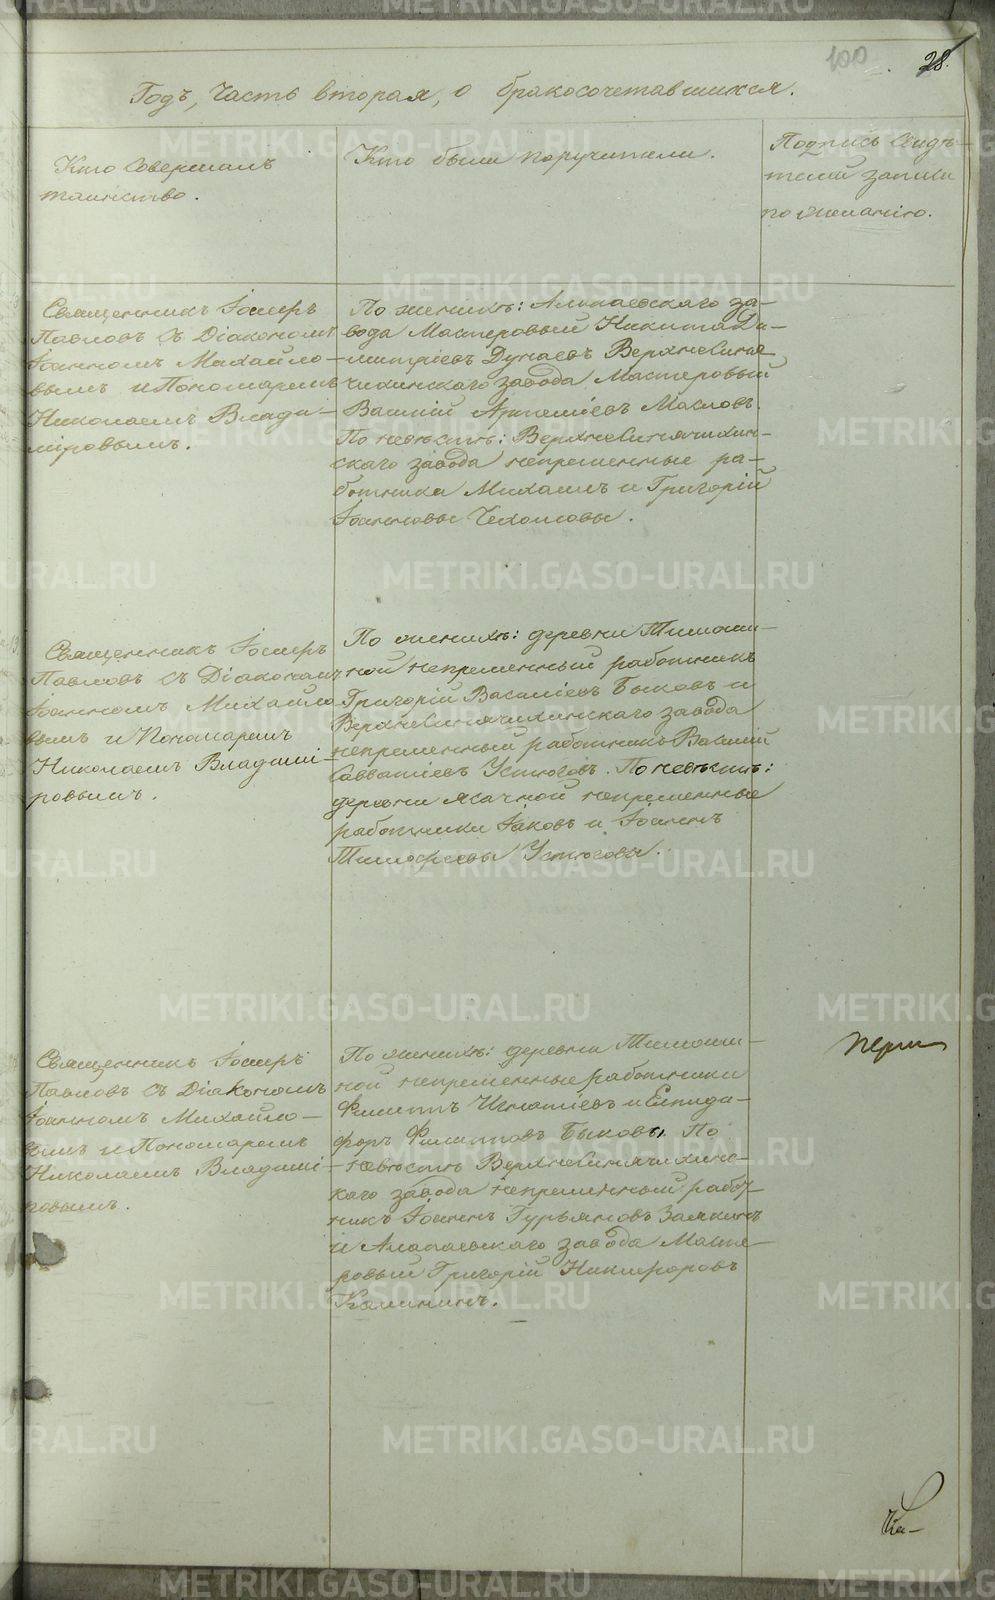 100
28.
Годъ, Часть вторая, о бракосочетавшихся.
Кто совершалъ
таинство.
Кто были поручители.
Подпись свидѣ-
телей записи
по желанію.
Священникъ Іосифъ
Павловъ съ Діакономъ
Іоанномъ Михайло-
вымъ и Пономаремъ
Николаемъ Влади-
міровымъ.
По женихѣ: Алапаевскаго за-
вода Мастеровый Никита Ди-
митріевъ Дунаевъ Верхнесиня-
чихинскаго завода Мастеровый
Василій Артеміевъ Масловъ.
По невѣстѣ: Верхнесинячихин-
скаго завода непременные ра-
ботники Михаилъ и Григорій
Іоанновы Чехомовы.
Священникъ Іосифъ
Павловъ съ Діакономъ
Іоанномъ Михайло-
вымъ и Пономаремъ
Николаемъ Владимі-
ровымъ.
По женихѣ: деревни Тимоши-
ной непременный работникъ
Григорій Василіевъ Быковъ и
Верхнесинячихинскаго завода
непременный работникъ Василій
Савватіевъ Устюговъ. По невѣстѣ:
деревни Ясачной непременные
работники Іаковъ и Іоаннъ
Тимофеевы Устюговы.
Священникъ Іосифъ
Павловъ съ Діакономъ
Іоанномъ Михайло-
вымъ и Пономаремъ
Николаемъ Владимі-
ровымъ.
По женихѣ: деревни Тимоши-
ной непременные работники
Филиппъ Игнатіевъ и Елпиди-
форъ Филипповъ Быковы. По
невѣстѣ Верхнесинячихинс-
каго завода непременный работ-
никъ Іоаннъ Гурьяновъ Заякинъ
и Алапаевскаго завода Масте-
ровый Григорій Никифоровъ
Калининъ.
METRIKI.GASO-URAL.RU